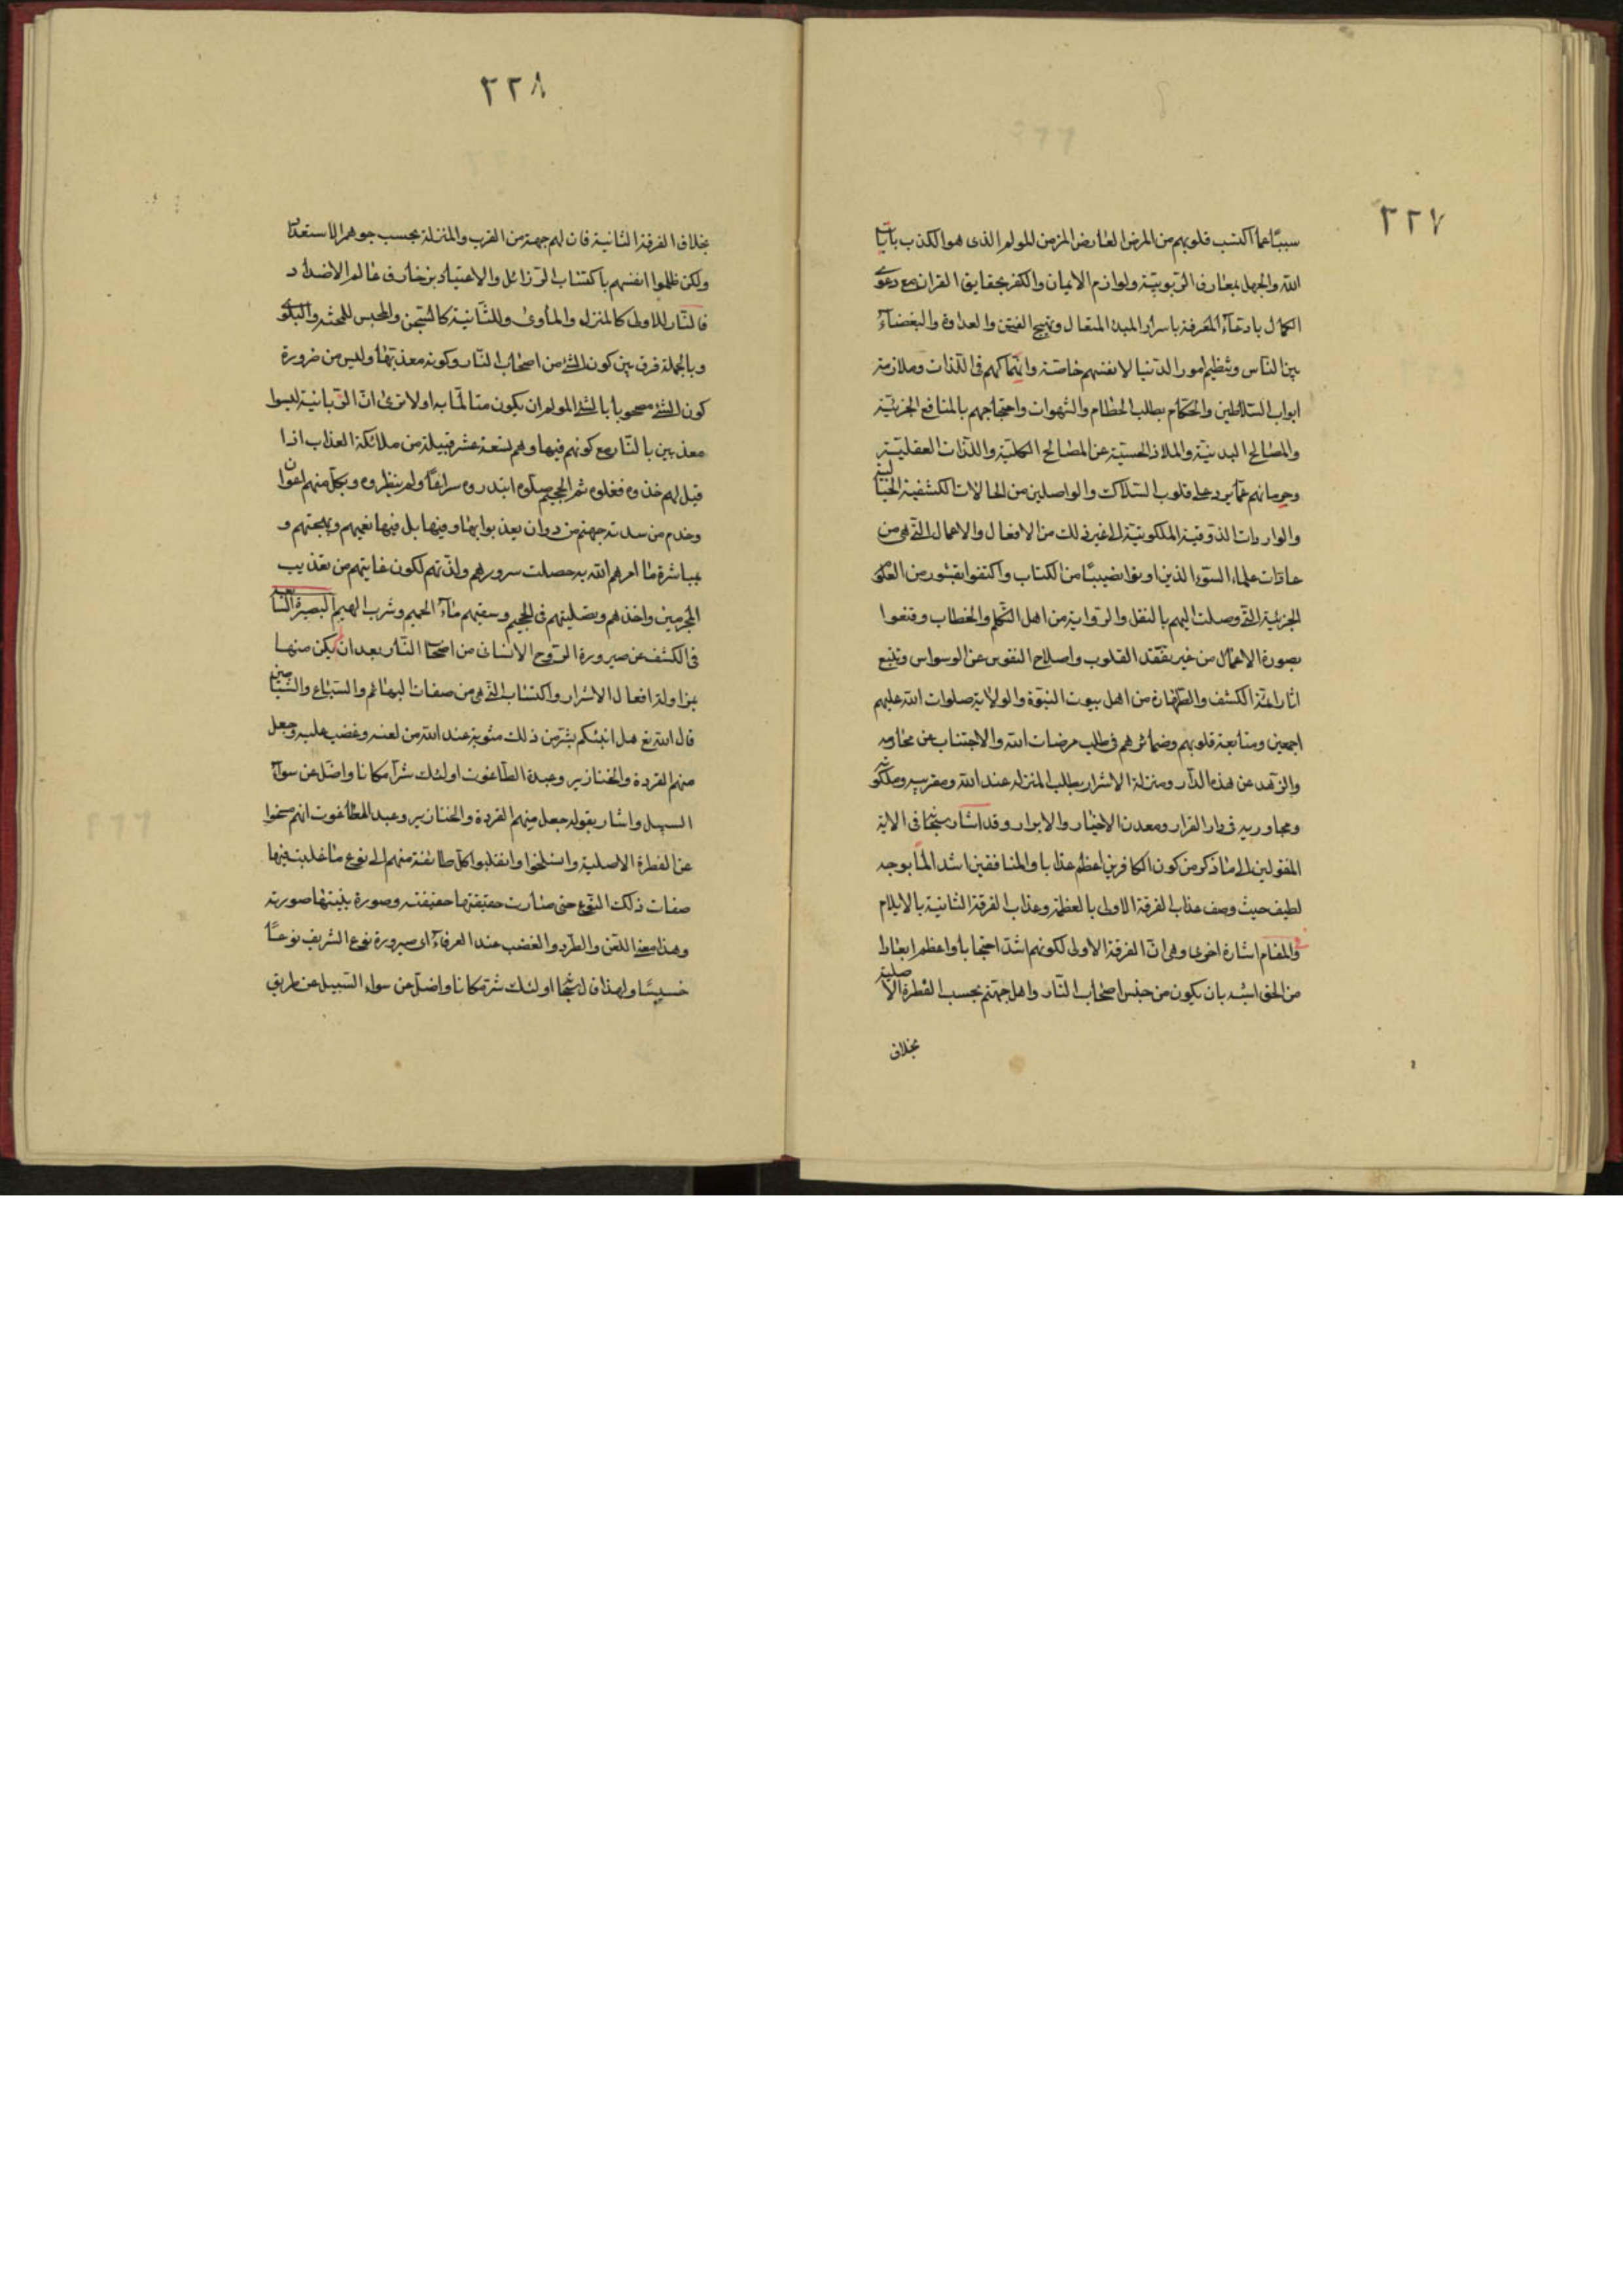 ٢٢٧
سببًا عما اكتسب قلوبهم من المرض العارض المزمن المولم الذى هو الكذب بآيات
الله والجهل بمعارف الربوبيّة ولوازم الايمان والكفر بحقايق القران مع دعوى
الكمال بادعآء المعرفة باسرار المبدء المتعال وتهيج الفتن والعداوة والبغضآء
بين الناس وتنظيم امور الدّنيا لانفسهم خاصّة وانهماكهم فى اللذات وملازمة
ابواب السّلاطين والحكام بطلب الحطام والشهوات واحتجاجهم بالمنافع الجزئيّة
والمصالح البدنيّة والملاذ الحسيّة عن المصالح الكليّة واللذات العقليّة
وحرمانهم عمّا يرد على قلوب السّلاك والواصلين من الحالات الكشفية
والواردات الذوقية الملكوتيّة الى غير ذلك من الافعال والاعمال التى هى من
عادات علماء السّوء الذين اوتوا نصيبًا من الكتاب واكتفوا بقشور من العلوم
الجزئية التى وصلت اليهم بالنقل والرّواية من اهل التكلم والخطاب وقنعوا
بصورة الاعمال من غير تفقد القلوب واصلاح النفوس عن الوسواس وتتبع
اثار ائمّة الكشف والطهارة من اهل بيوت النبوّة والولاية صلوات الله عليهم
اجمعين ومتابعة قلوبهم وضمائرهم فى طلب مرضات الله والاجتناب عن محارمه
والزهد عن هذه الدّار ومنزلة الاشرار بطلب المنزلة عند الله ومقربيه وملكوته
ومجاوريه فى دار القرار ومعدن الاخيار والابرار وقد اشار سبحانه فى الاية
المنقولين الى ما ذكر من كون الكافرين اعظم عذابا والمنافقين اشد المًا بوجه
لطيف حيث وصف عذاب الفرقة الاولى بالعظمة وعذاب الفرقة الثانية بالايلام
وفى المقام اشارة اخرى وهى انّ الفرقة الاولى لكونهم اشدّ احتجابا واعظم ابعادا
من الحق اشبه بان يكون من جنس اصحاب النّار واهل جهنّم بحسب الفطرة الاصلية
بخلاف
٢٢٨
بخلاف الفرقة الثانية فان لهم جهة من القرب والمنزلة بحسب جوهر الاستعداد
ولكن ظلموا انفسهم باكتساب الرّذائل والاعتياد بزخارف عالم الاضداد
فالنّار للاولى كالمنزل والمأوى وللثّانية كالسّجن والمحبس للمحنة والبلوى
وبالجملة فرق بين كون الشئ من اصحاب النّار وكونه معذبا بها وليس من ضرورة
كون الشئ مصحوبا بالشئ المولم ان يكون متالّما به اولا ترى انّ الزّبانية ليسوا
معذبين بالنّار مع كونهم فيها وهم تسعة عشر قبيلة من ملائكة العذاب اذا
قيل لهم خذوه فغلوه ثم الجحيم صلّوه ابتدروه سراعًا ولم ينظروه وبكلّ منهم اعوان
وخدم من سدنة جهنم من دوان يعذبوا بها وفيها بل فيها نعيمهم وبهجتهم و
بمباشرة ما امرهم الله به حصلت سرورهم ولذّتهم لكون غايتهم من تعذيب
المجرمين واخذهم وتصليتهم فى الجحيم وسقيهم مآء الحميم وشرب الهيم البصيرة الثانية
فى الكشف عن صيرورة الرّوح الانسانى من اصحاب النّار بعد ان يكن منها
بمزاولة افعال الاشرار واكتساب التى هى من صفات البهائم والسّباع والشّياطين
قال الله تع هل انبئكم بشرّ من ذلك مثوبة عند الله من لعنه وغضب عليه وجعل
منهم القردة والخنازير وعبدة الطّاغوت اولئك شرّ مكانا واضلّ عن سوآء
السبيل واشار بقوله جعل منهم القردة والخنازير وعبد الطاغوت انهم مسخوا
عن الفطرة الاصلية وانسلخوا وانقلبوا كلّ طائفة منهم الى نوع ما غلبت فيها
صفات ذلك النّوع حتى صارت حقيقتها حقيقته وصورة بنيتها صورته
وهذا معنى اللعن والطّرد والغضب عند العرفآء اى صيرورة نوع الشريف نوعًا
خسيسًا ولهذا قال سبحانه اولئك شرّ مكانا واضلّ عن سواء السّبيل عن طريق